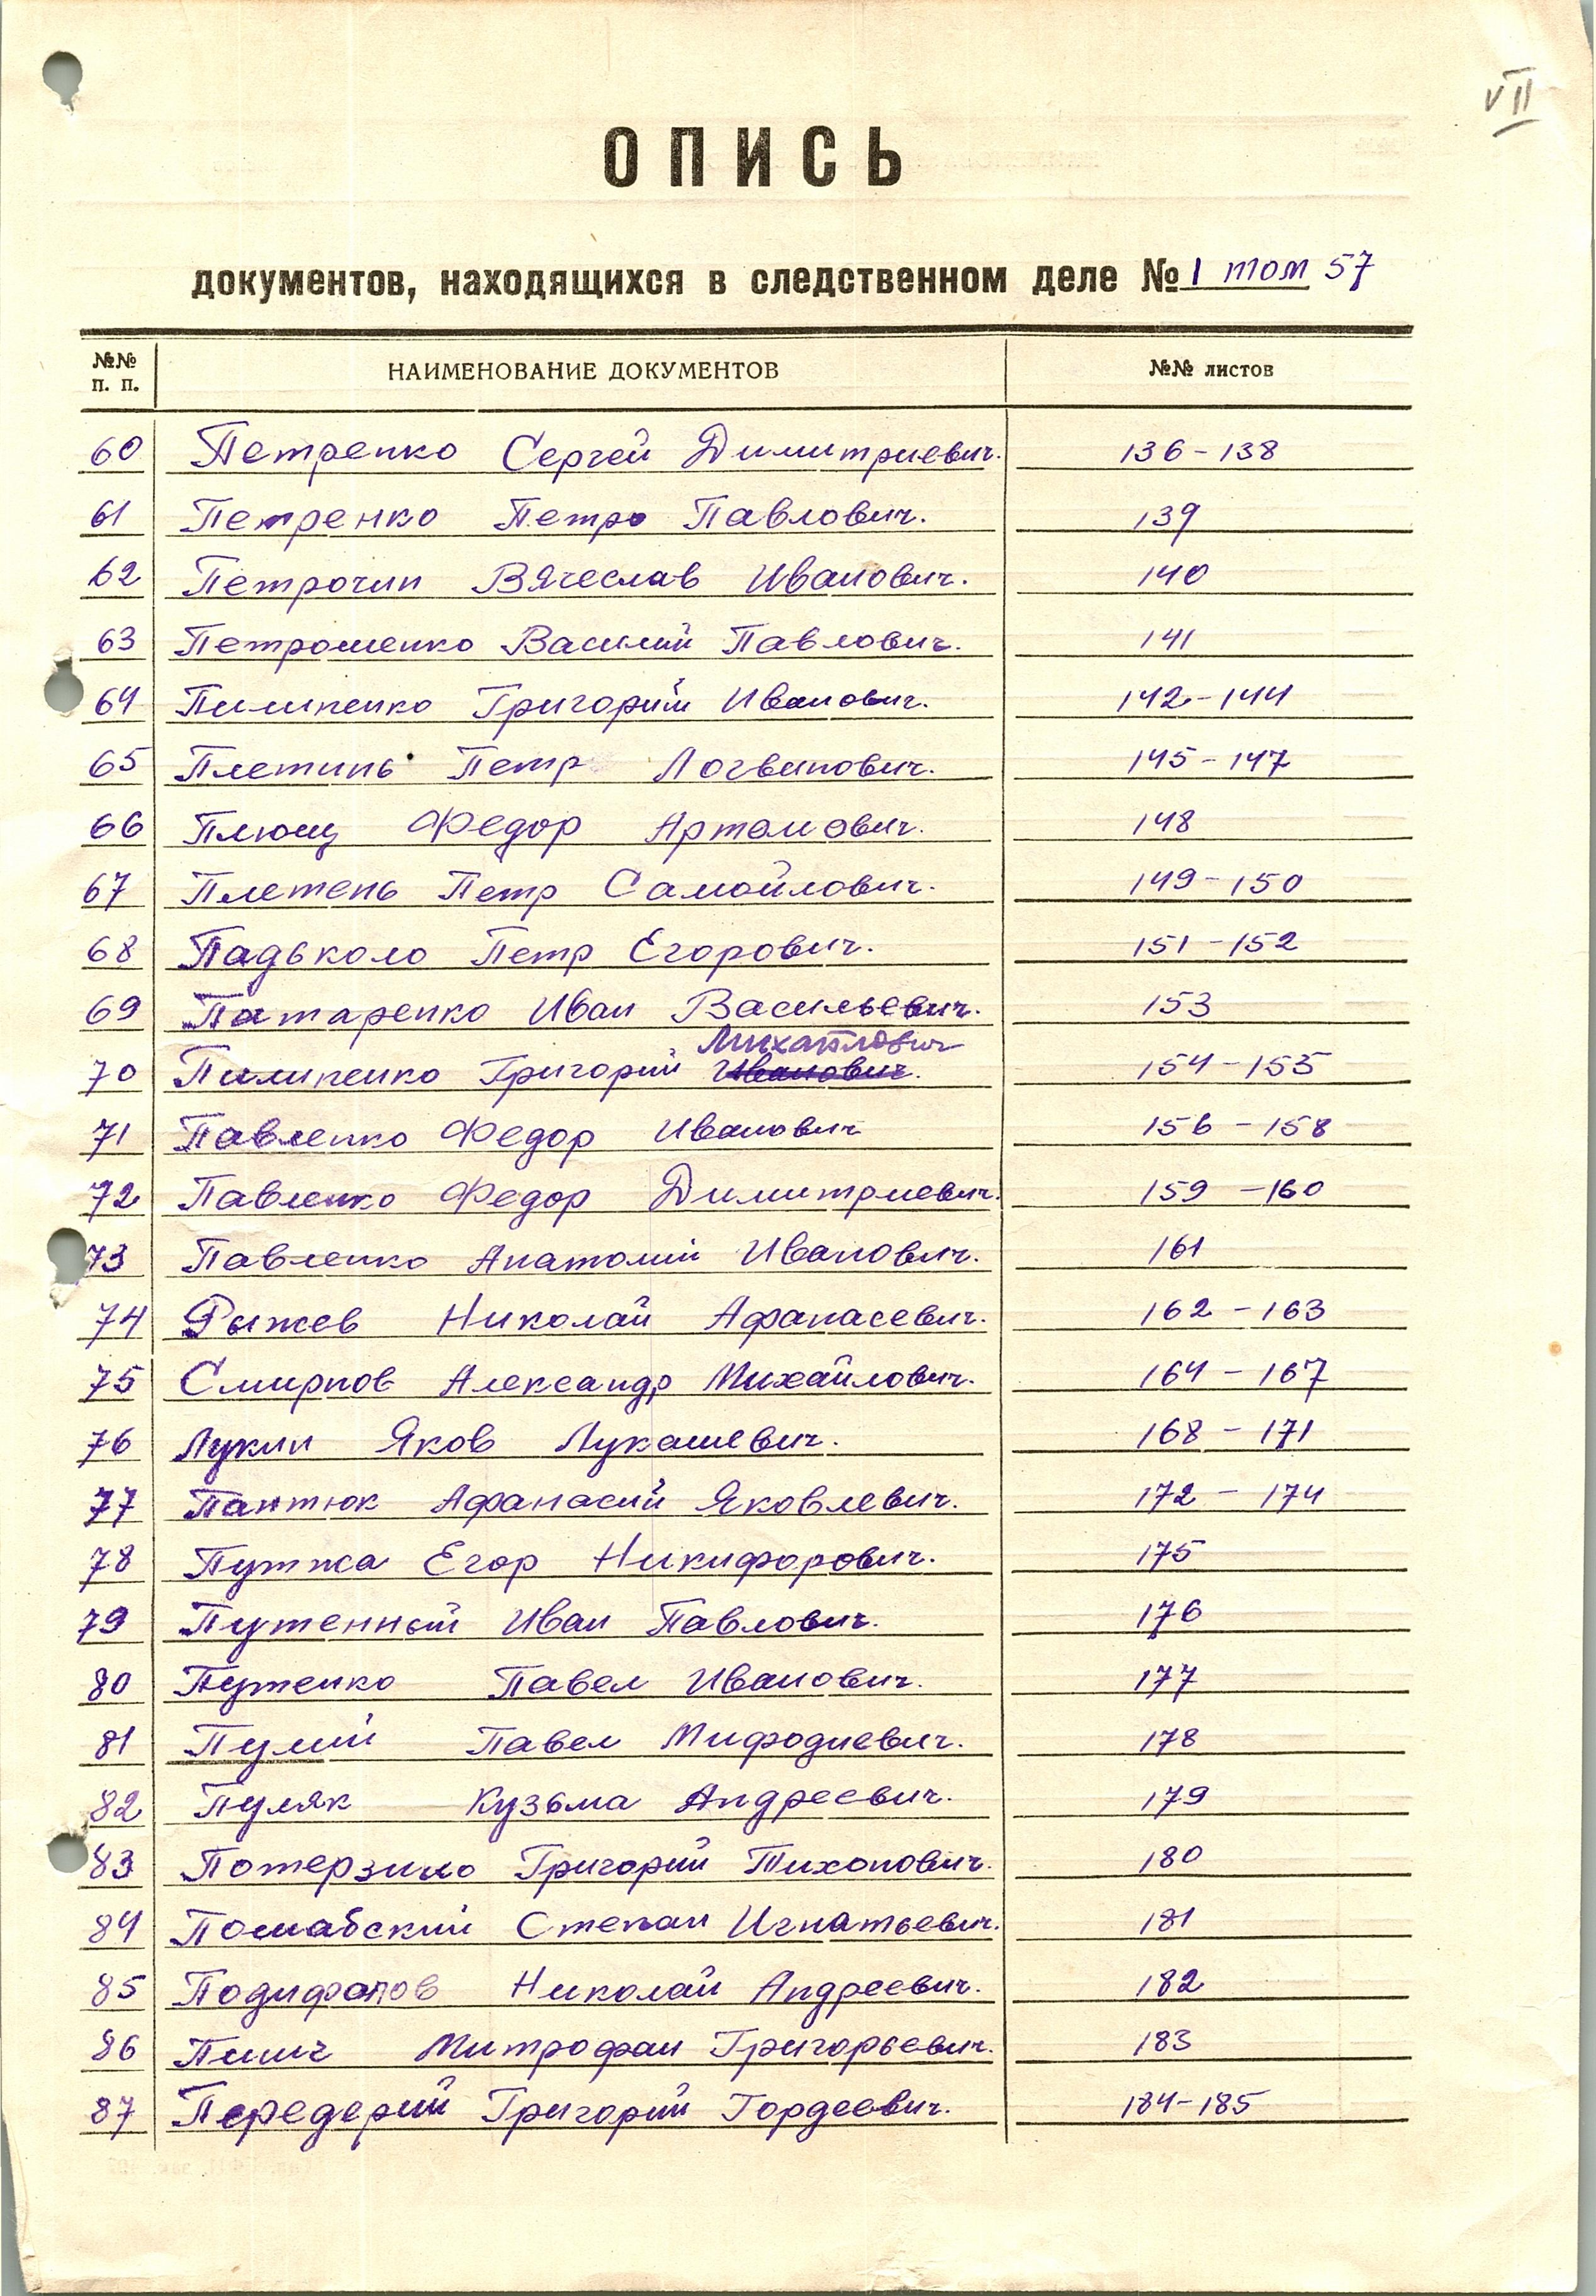 VII
ОПИСЬ
документов, находящихся в следственном деле № 1 том 57
№№ п. п. НАИМЕНОВАНИЕ ДОКУМЕНТОВ №№ листов
60 Петренко Сергей Димитриевич. 136-138
61 Петренко Петро Павлович. 139
62 Петрочин Вячеслав Иванович. 140
63 Петрошенко Василий Павлович. 141
64 Пилипенко Григорий Иванович. 142-144
65 Плетинь Петр Логвинович. 145-147
66 Плющ Федор Артамович. 148
67 Плетень Петр Самойлович. 149-150
68 Падьколо Петр Егорович. 151-152
69 Патаренко Иван Васильевич. 153
Михайлович
70 Пилипенко Григорий Иванович. 154-155
71 Павленко Федор Иванович 156-158
72 Павленко Федор Димитриевич. 159-160
73 Павленко Анатолий Иванович. 161
74 Рыжев Николай Афанасевич. 162-163
75 Смирнов Александр Михайлович. 164-167
76 Лукин Яков Лукашевич. 168-171
77 Пантюк Афанасий Яковлевич. 172-174
78 Пужжа Егор Никифорович. 175
79 Путенный Иван Павлович. 176
80 Путенко Павел Иванович. 177
81 Пулий Павел Мифодиевич. 178
82 Пуляк Кузьма Андреевич. 179
83 Потерзило Григорий Тихонович. 180
84 Помабский Степан Игнатьевич. 181
85 Подифанов Николай Андреевич. 182
86 Митрофан Григорьевич. 183
87 Передерий Григорий Гордеевич. 184-185